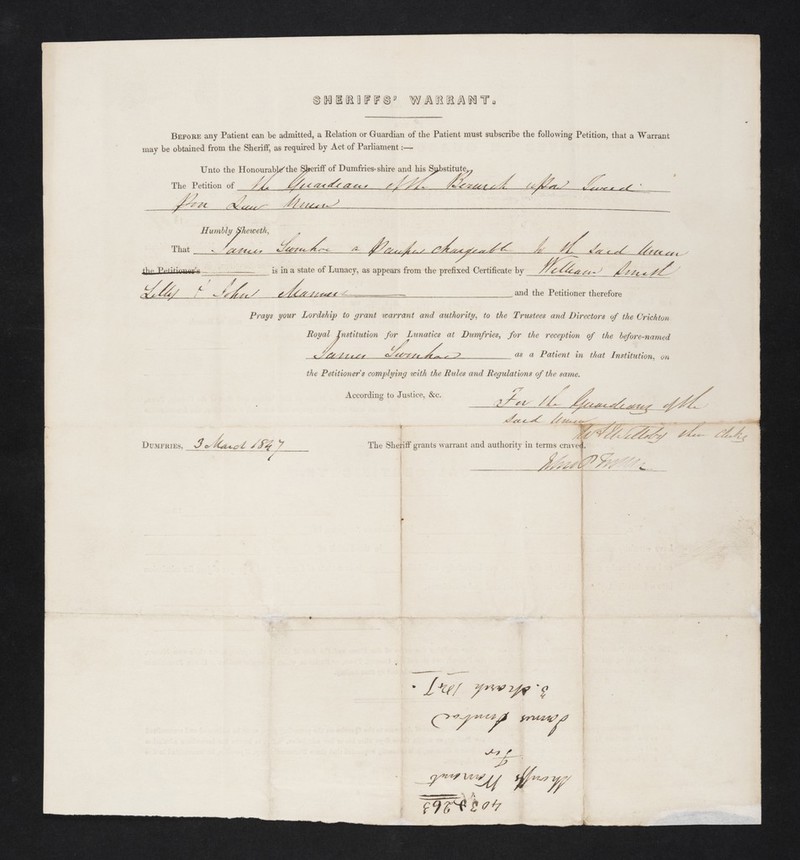 SHERIFFS' WARRANT.
BEFORE any Patient can be admitted, a Relation or Guardian of the Patient must subscribe the following Petition, that a Warrant
may be obtained from the Sheriff, as required by Act of Parliament:—
Unto the Honourable the Sheriff of Dumfries-shire and his Substitute,
The Petition of the Guardians of the Berwick upon Tweed
Poor Law Union
Humbly Sheweth,
That James Swinhoe a Pauper chargeable to the said Union
the Petitioner's is in a state of Lunacy, as appears from the prefixed Certificate by William Smith
& John and the Petitioner therefore
Prays your Lordship to grant warrant and authority, to the Trustees and Directors of the Crichton
Royal Institution for Lunatics at Dumfries, for the reception of the before-named
James Swinhoe as a Patient in that Institution, on
the Petitioner's complying with the Rules and Regulations of the same.
According to Justice, &c.
For the Guardians of the
said Union
their Clerk
DUMFRIES, 3 March 1847 The Sheriff grants warrant and authority in terms craved.
3. March 1847.
James Swinhoe
For
Sheriffs Warrant